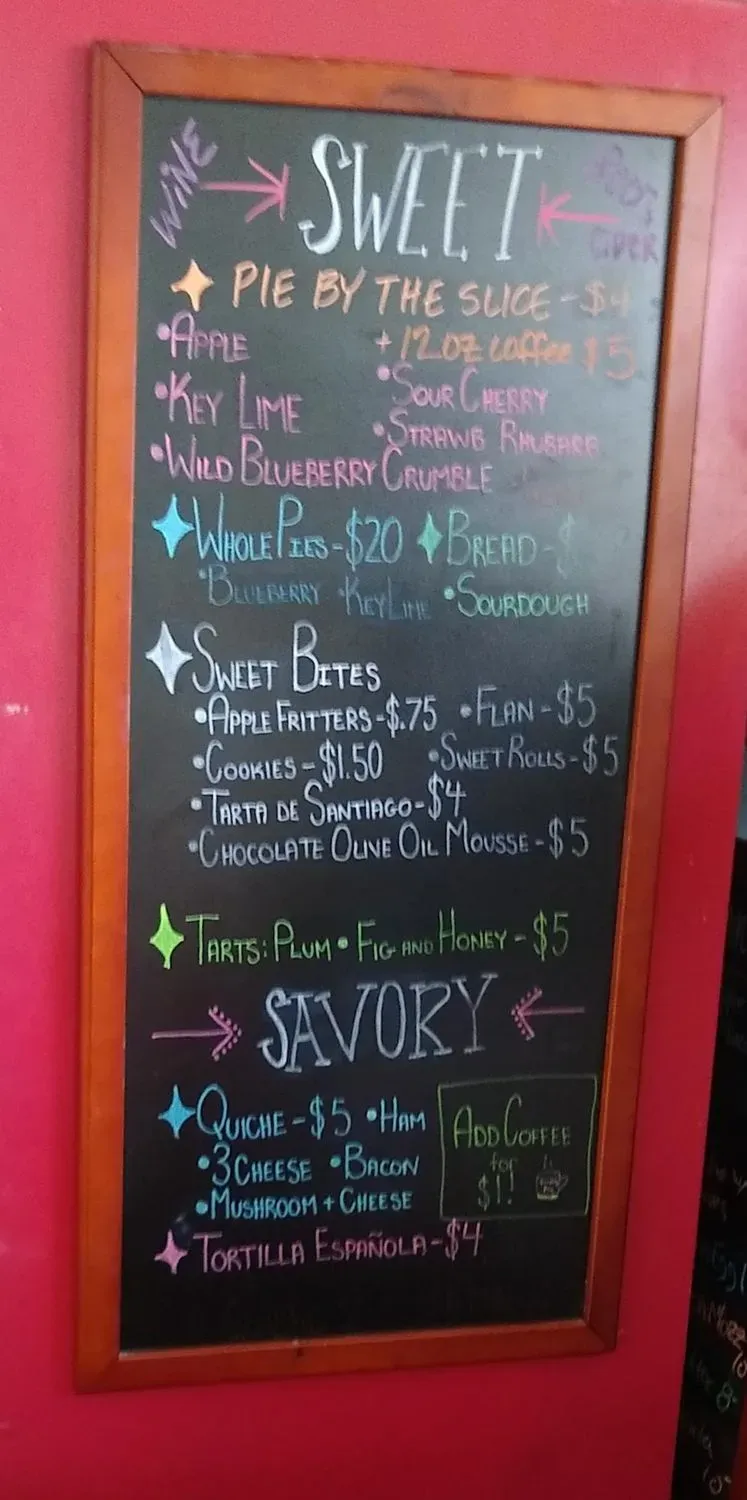 WINE
SWEET
CIDER
PIE BY THE SLICE - $4
• APPLE + 12 OZ coffee $5
• KEY LIME • SOUR CHERRY
• STRAWB RHUBARB
• WILD BLUEBERRY CRUMBLE
WHOLE PIES - $20 BREAD - $
• BLUEBERRY • KEY LIME • SOURDOUGH
SWEET BITES
• APPLE FRITTERS - $.75 • FLAN - $5
• COOKIES - $1.50 • SWEET ROLLS - $5
• TARTA DE SANTIAGO - $4
• CHOCOLATE OLIVE OIL MOUSSE - $5
TARTS: PLUM • FIG AND HONEY - $5
SAVORY
QUICHE - $5 • HAM
• 3 CHEESE • BACON
• MUSHROOM + CHEESE
ADD COFFEE
for
$1!
TORTILLA ESPAÑOLA - $4